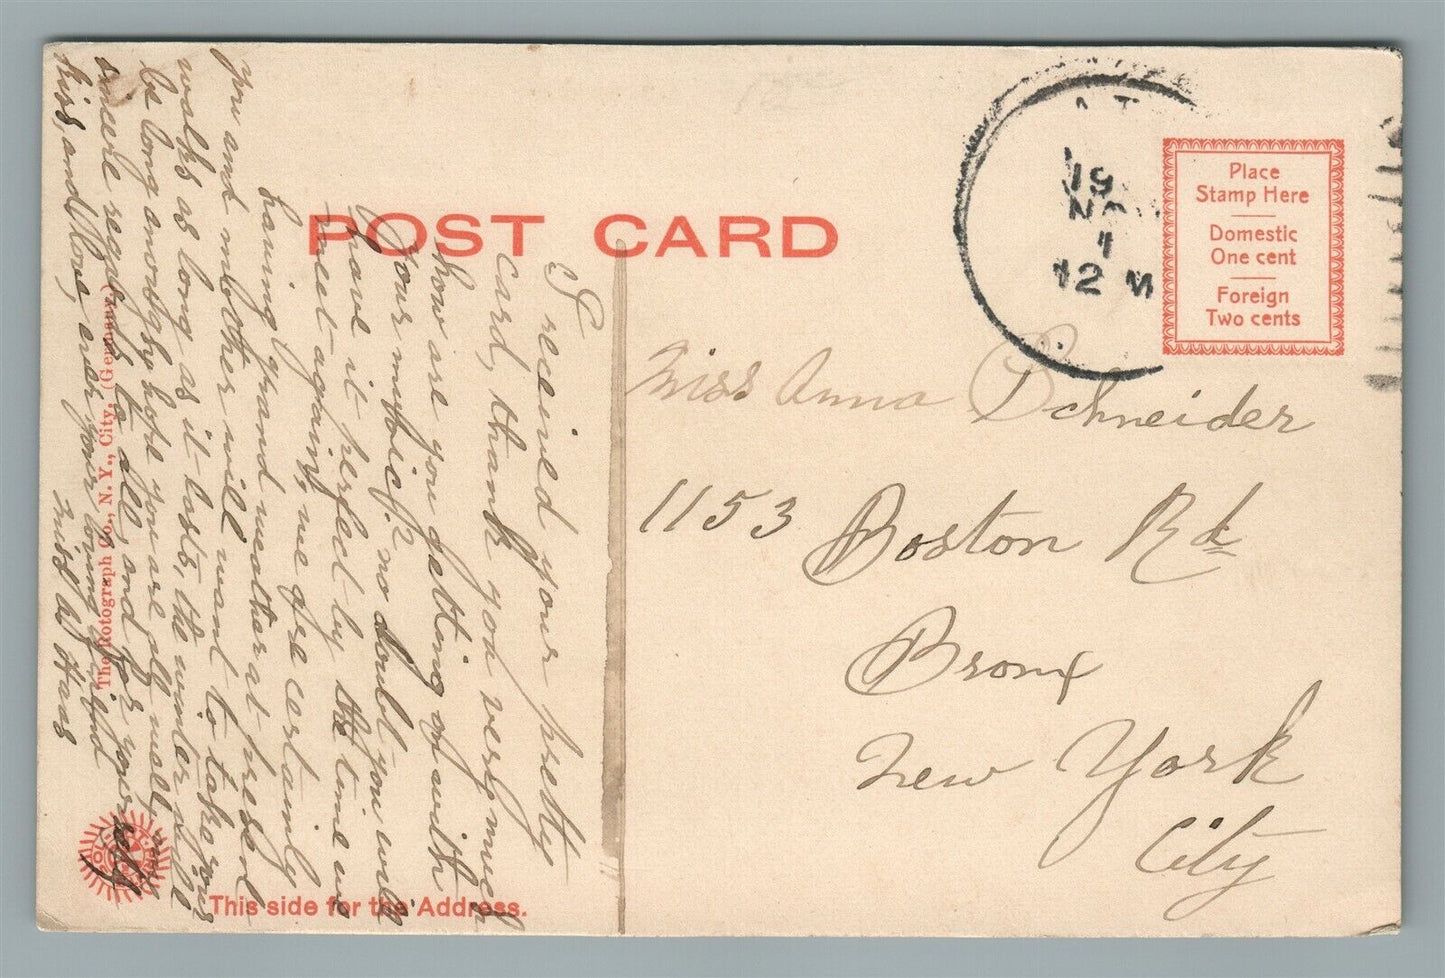 POST CARD
19
NO
1
12 M
Place
Stamp Here
Domestic
One cent
Foreign
Two cents
Miss Anna Schneider
1153 Boston Rd
Bronx
New York
City
I received your pretty
card, thank you very much
how are you getting on with
your music? no doubt you will
have it perfect by the time we
meet again, we are certainly
having grand weather at present
you and mother will want to take your
walks as long as it lasts, the winter will
be long enough, hope you are all well,
sincere regards to all, and for yourself
kiss, and love, ever your loving friend
Miss W Haas
The Rotograph Co., N. Y., City. (Germany.)
This side for the Address.